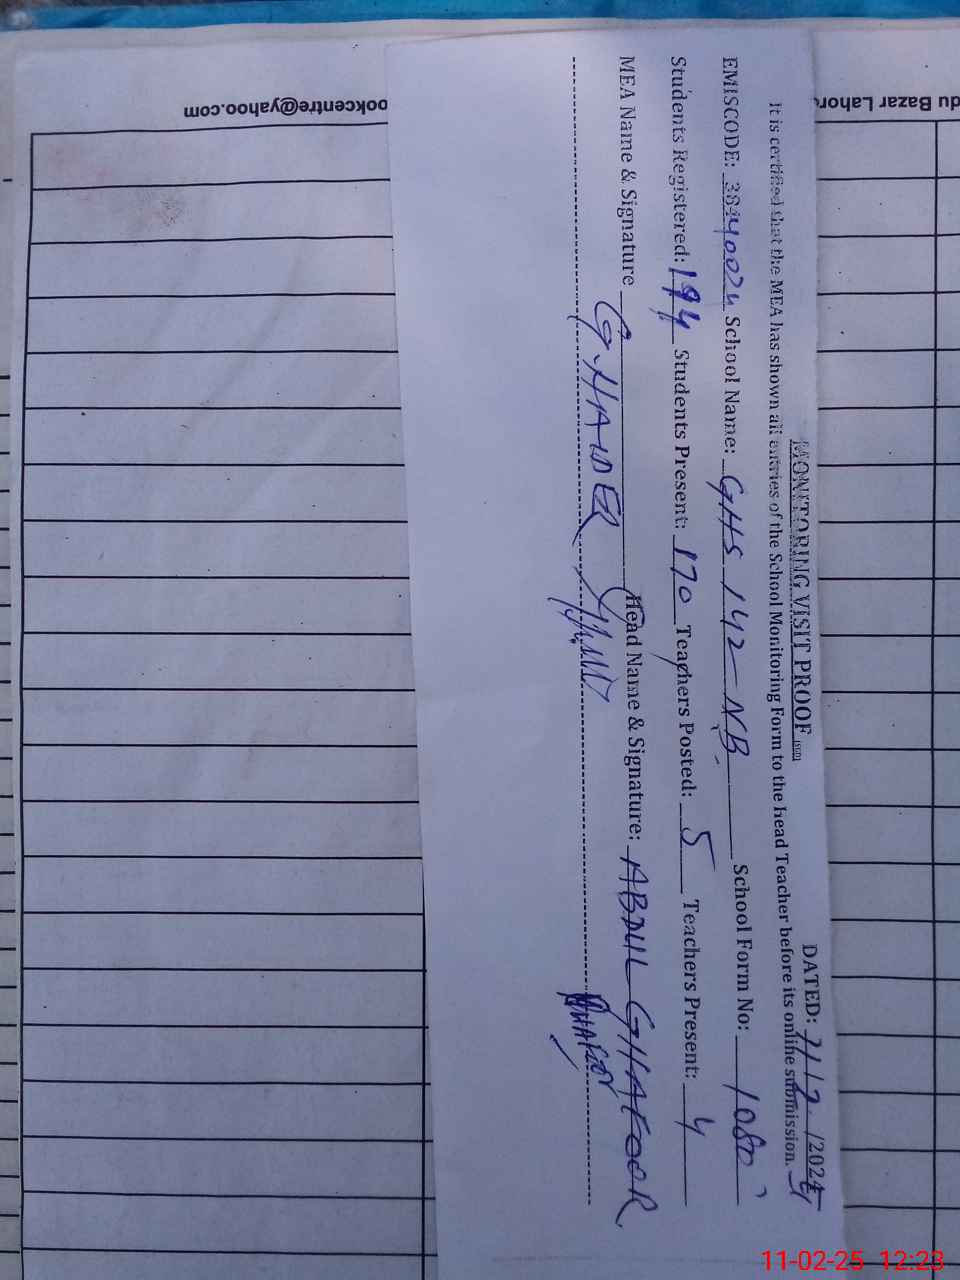 MONITORING VISIT PROOF (SED)
DATED: 11/2/2025
It is certified that the MEA has shown all entries of the School Monitoring Form to the head Teacher before its online submission.
EMISCODE: 38440024 School Name: GHS 142-NB School Form No: 1080
Students Registered: 194 Students Present: 170 Teachers Posted: 5 Teachers Present: 4
MEA Name & Signature G. HAIDER Head Name & Signature: ABDUL GHAFOOR
ookcentre@yahoo.com
du Bazar Lahor
11-02-25 12:23